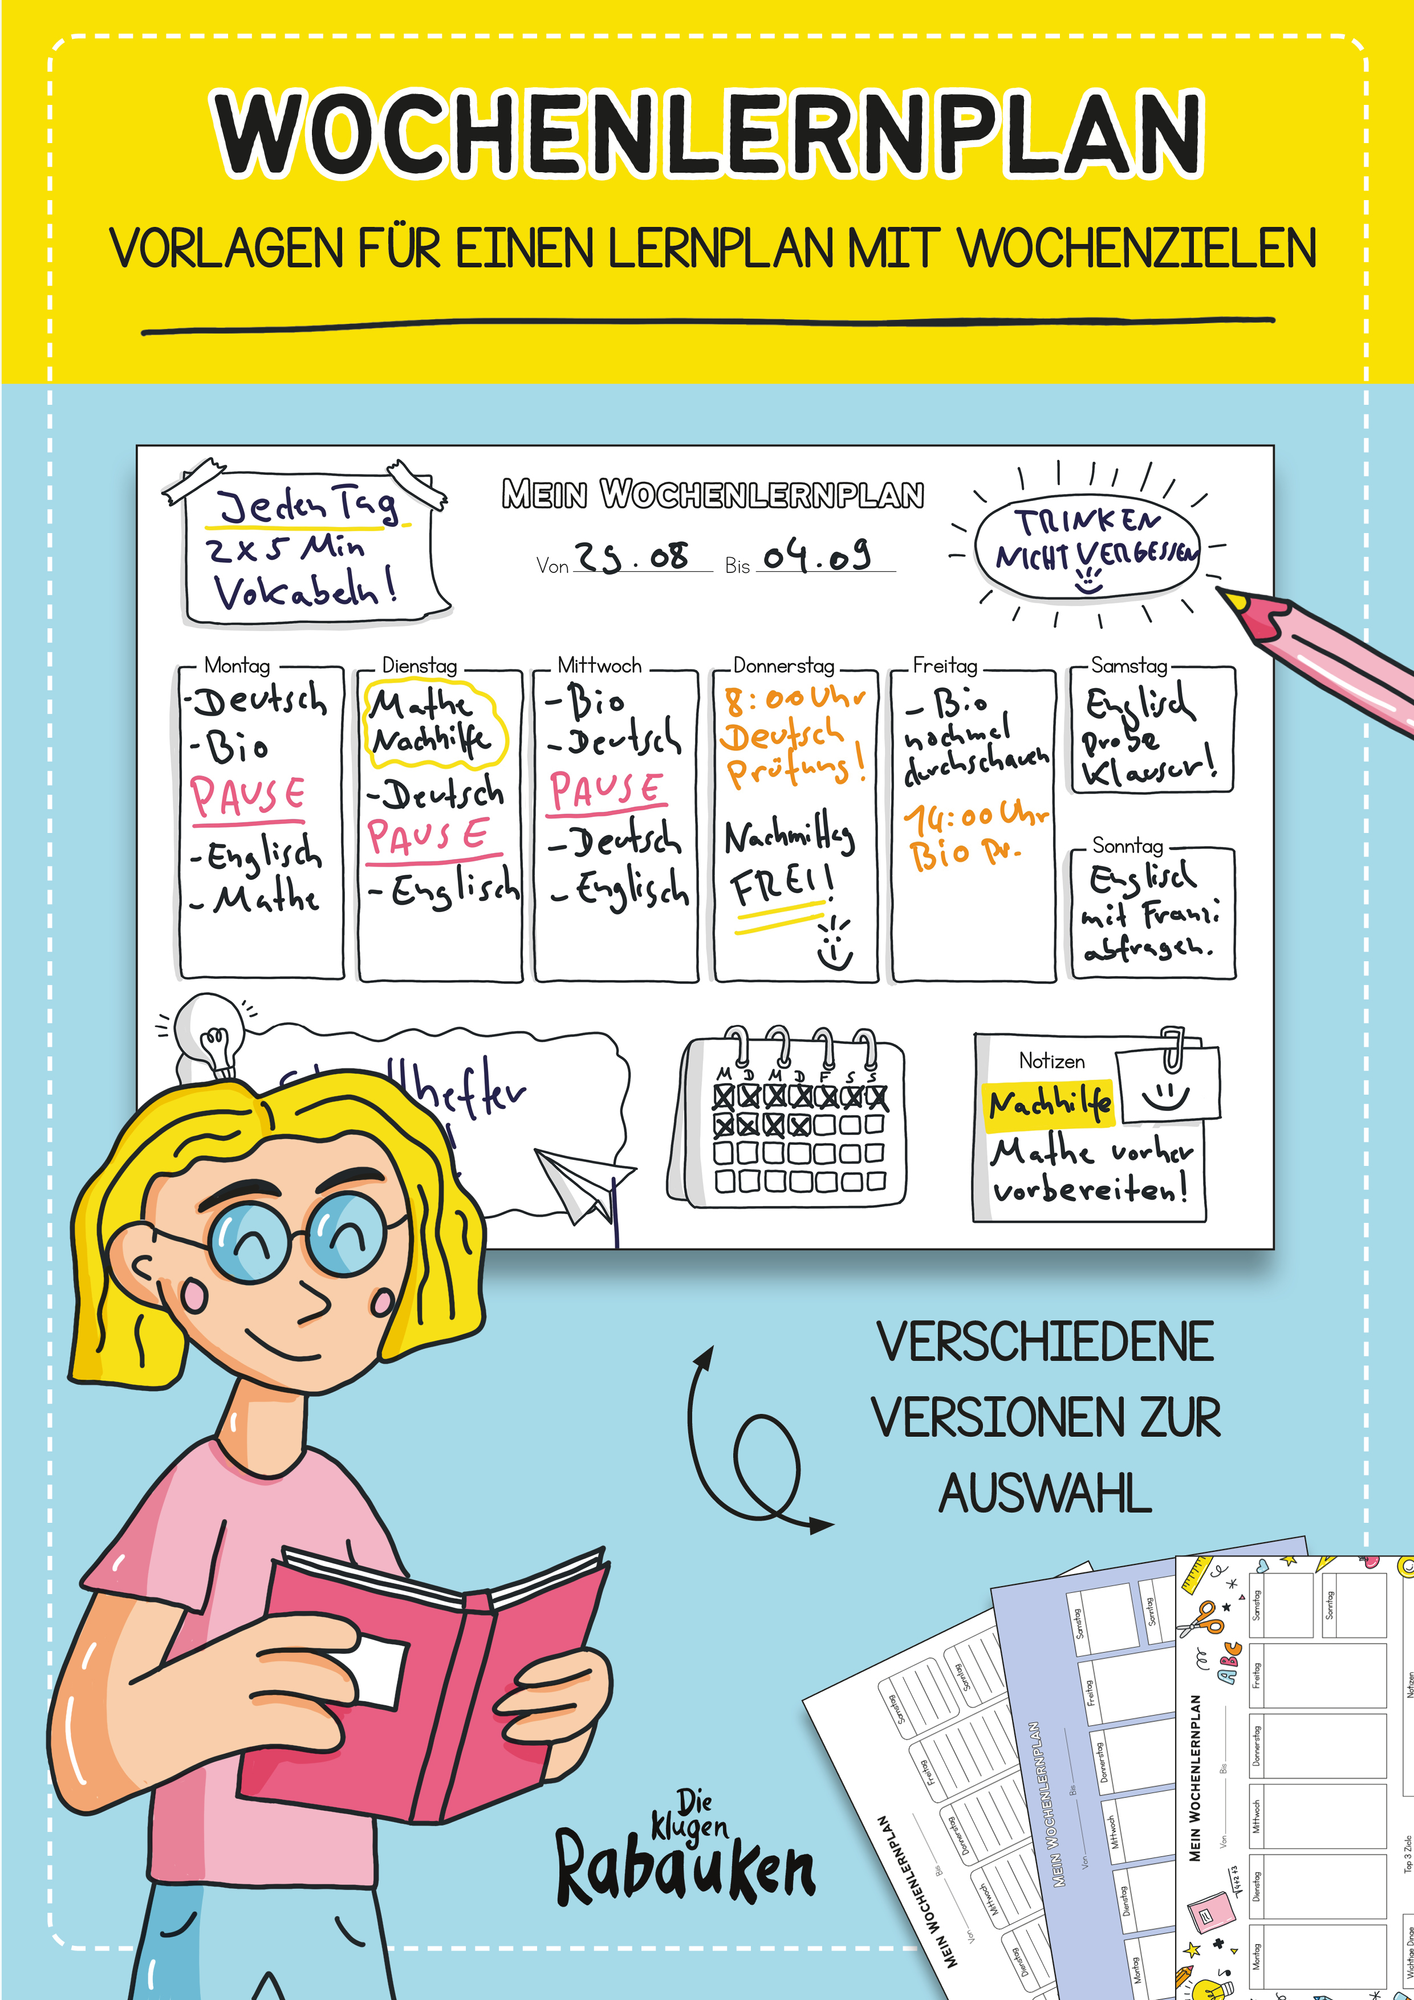 WOCHENLERNPLAN
VORLAGEN FÜR EINEN LERNPLAN MIT WOCHENZIELEN
Jeden Tag
2x5 Min
Vokabeln!
MEIN WOCHENLERNPLAN
Von 29.08 Bis 04.09
TRINKEN
NICHT VERGESSEN
Montag
-Deutsch
-Bio
PAUSE
-Englisch
-Mathe
Dienstag
Mathe
Nachhilfe
-Deutsch
PAUSE
-Englisch
Mittwoch
-Bio
-Deutsch
PAUSE
-Deutsch
-Englisch
Donnerstag
8:00 Uhr
Deutsch
Prüfung!
Nachmittag
FREI!
Freitag
-Bio
nochmal
durchschauen
14:00 Uhr
Bio Pr.
Samstag
Englisch
Probe
Klausur!
Sonntag
Englisch
mit Franzi
abfragen.
hefter
M D M D F S S
Notizen
Nachhilfe
Mathe vorher
vorbereiten!
VERSCHIEDENE
VERSIONEN ZUR
AUSWAHL
Die
klugen
Rabauken
MEIN WOCHENLERNPLAN
Von Bis
Dienstag
Mittwoch
Donnerstag
Freitag
Samstag
Sonntag
MEIN WOCHENLERNPLAN
Von Bis
Montag
Dienstag
Mittwoch
Donnerstag
Freitag
Samstag
Sonntag
ABC
MEIN WOCHENLERNPLAN
Von Bis
Montag
Dienstag
Mittwoch
Donnerstag
Freitag
Samstag
Sonntag
Wichtige Dinge
Top 3 Ziele
Notizen